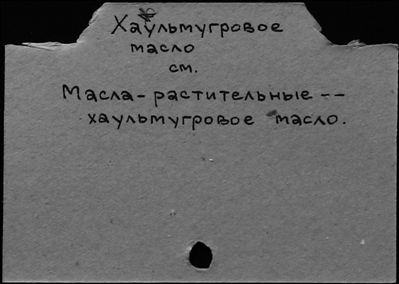 Хаульмугровое
масло
см.
Масла - растительные --
хаульмугровое масло.